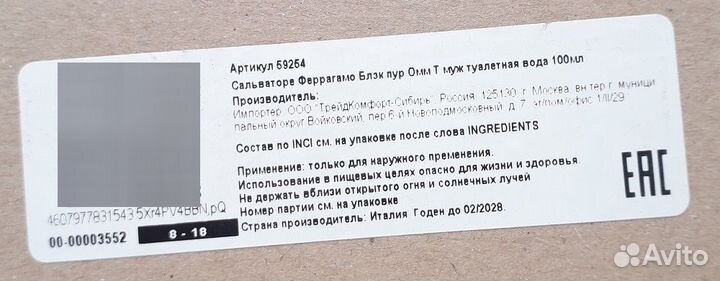 Артикул 59254
Сальваторе Феррагамо Блэк пур Омм Т муж туалетная вода 100мл
Производитель:
Импортер: ООО "ТрейдКомфорт-Сибирь", Россия, 125130, г. Москва, вн.тер.г. муници
пальный округ Войковский, пер 6-й Новоподмосковный, д. 7, эт/пом/офис 1/II/29
Состав по INCI см. на упаковке после слова INGREDIENTS
Применение: только для наружного применения.
Использование в пищевых целях опасно для жизни и здоровья.
Не держать вблизи открытого огня и солнечных лучей
Номер партии см. на упаковке
Страна производитель: Италия Годен до 02/2028.
4607977831543
00-00003552
8 - 18
EAC
Avito